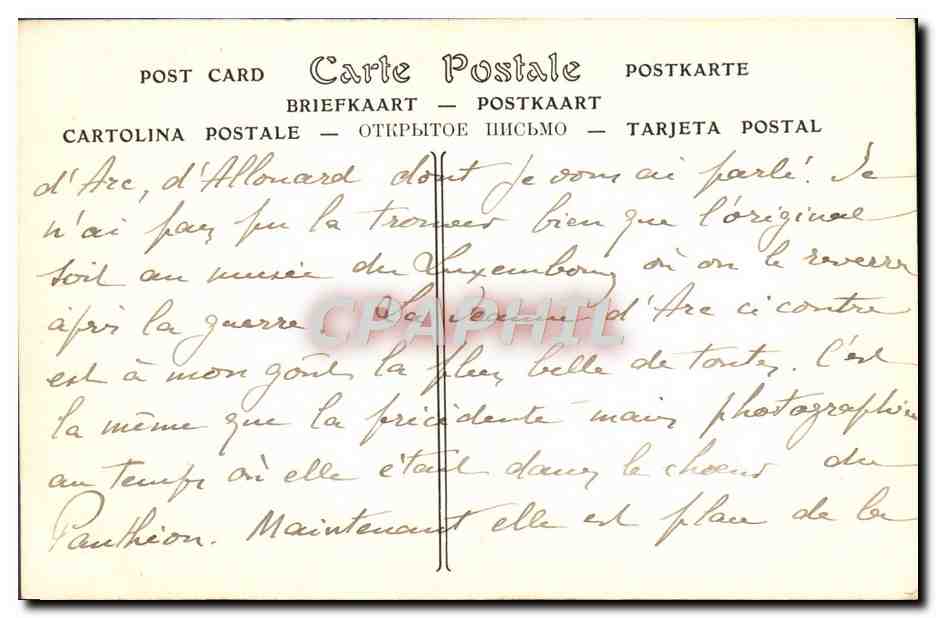 POST CARD Carte Postale POSTKARTE
BRIEFKAART — POSTKAART
CARTOLINA POSTALE — ОТКРЫТОЕ ПИСЬМО — TARJETA POSTAL
d'Arc, d'Allouard dont je vous ai parlé. Je
n'ai pas pu la trouver bien que l'original
soit au musée du Luxembourg où on le reverra
après la guerre. La Jeanne d'Arc ci contre
est à mon goût la plus belle de toutes. C'est
la même que la précédente mais photographiée
au temps où elle était dans le choeur du
Panthéon. Maintenant elle est place de la
CPAPHIL